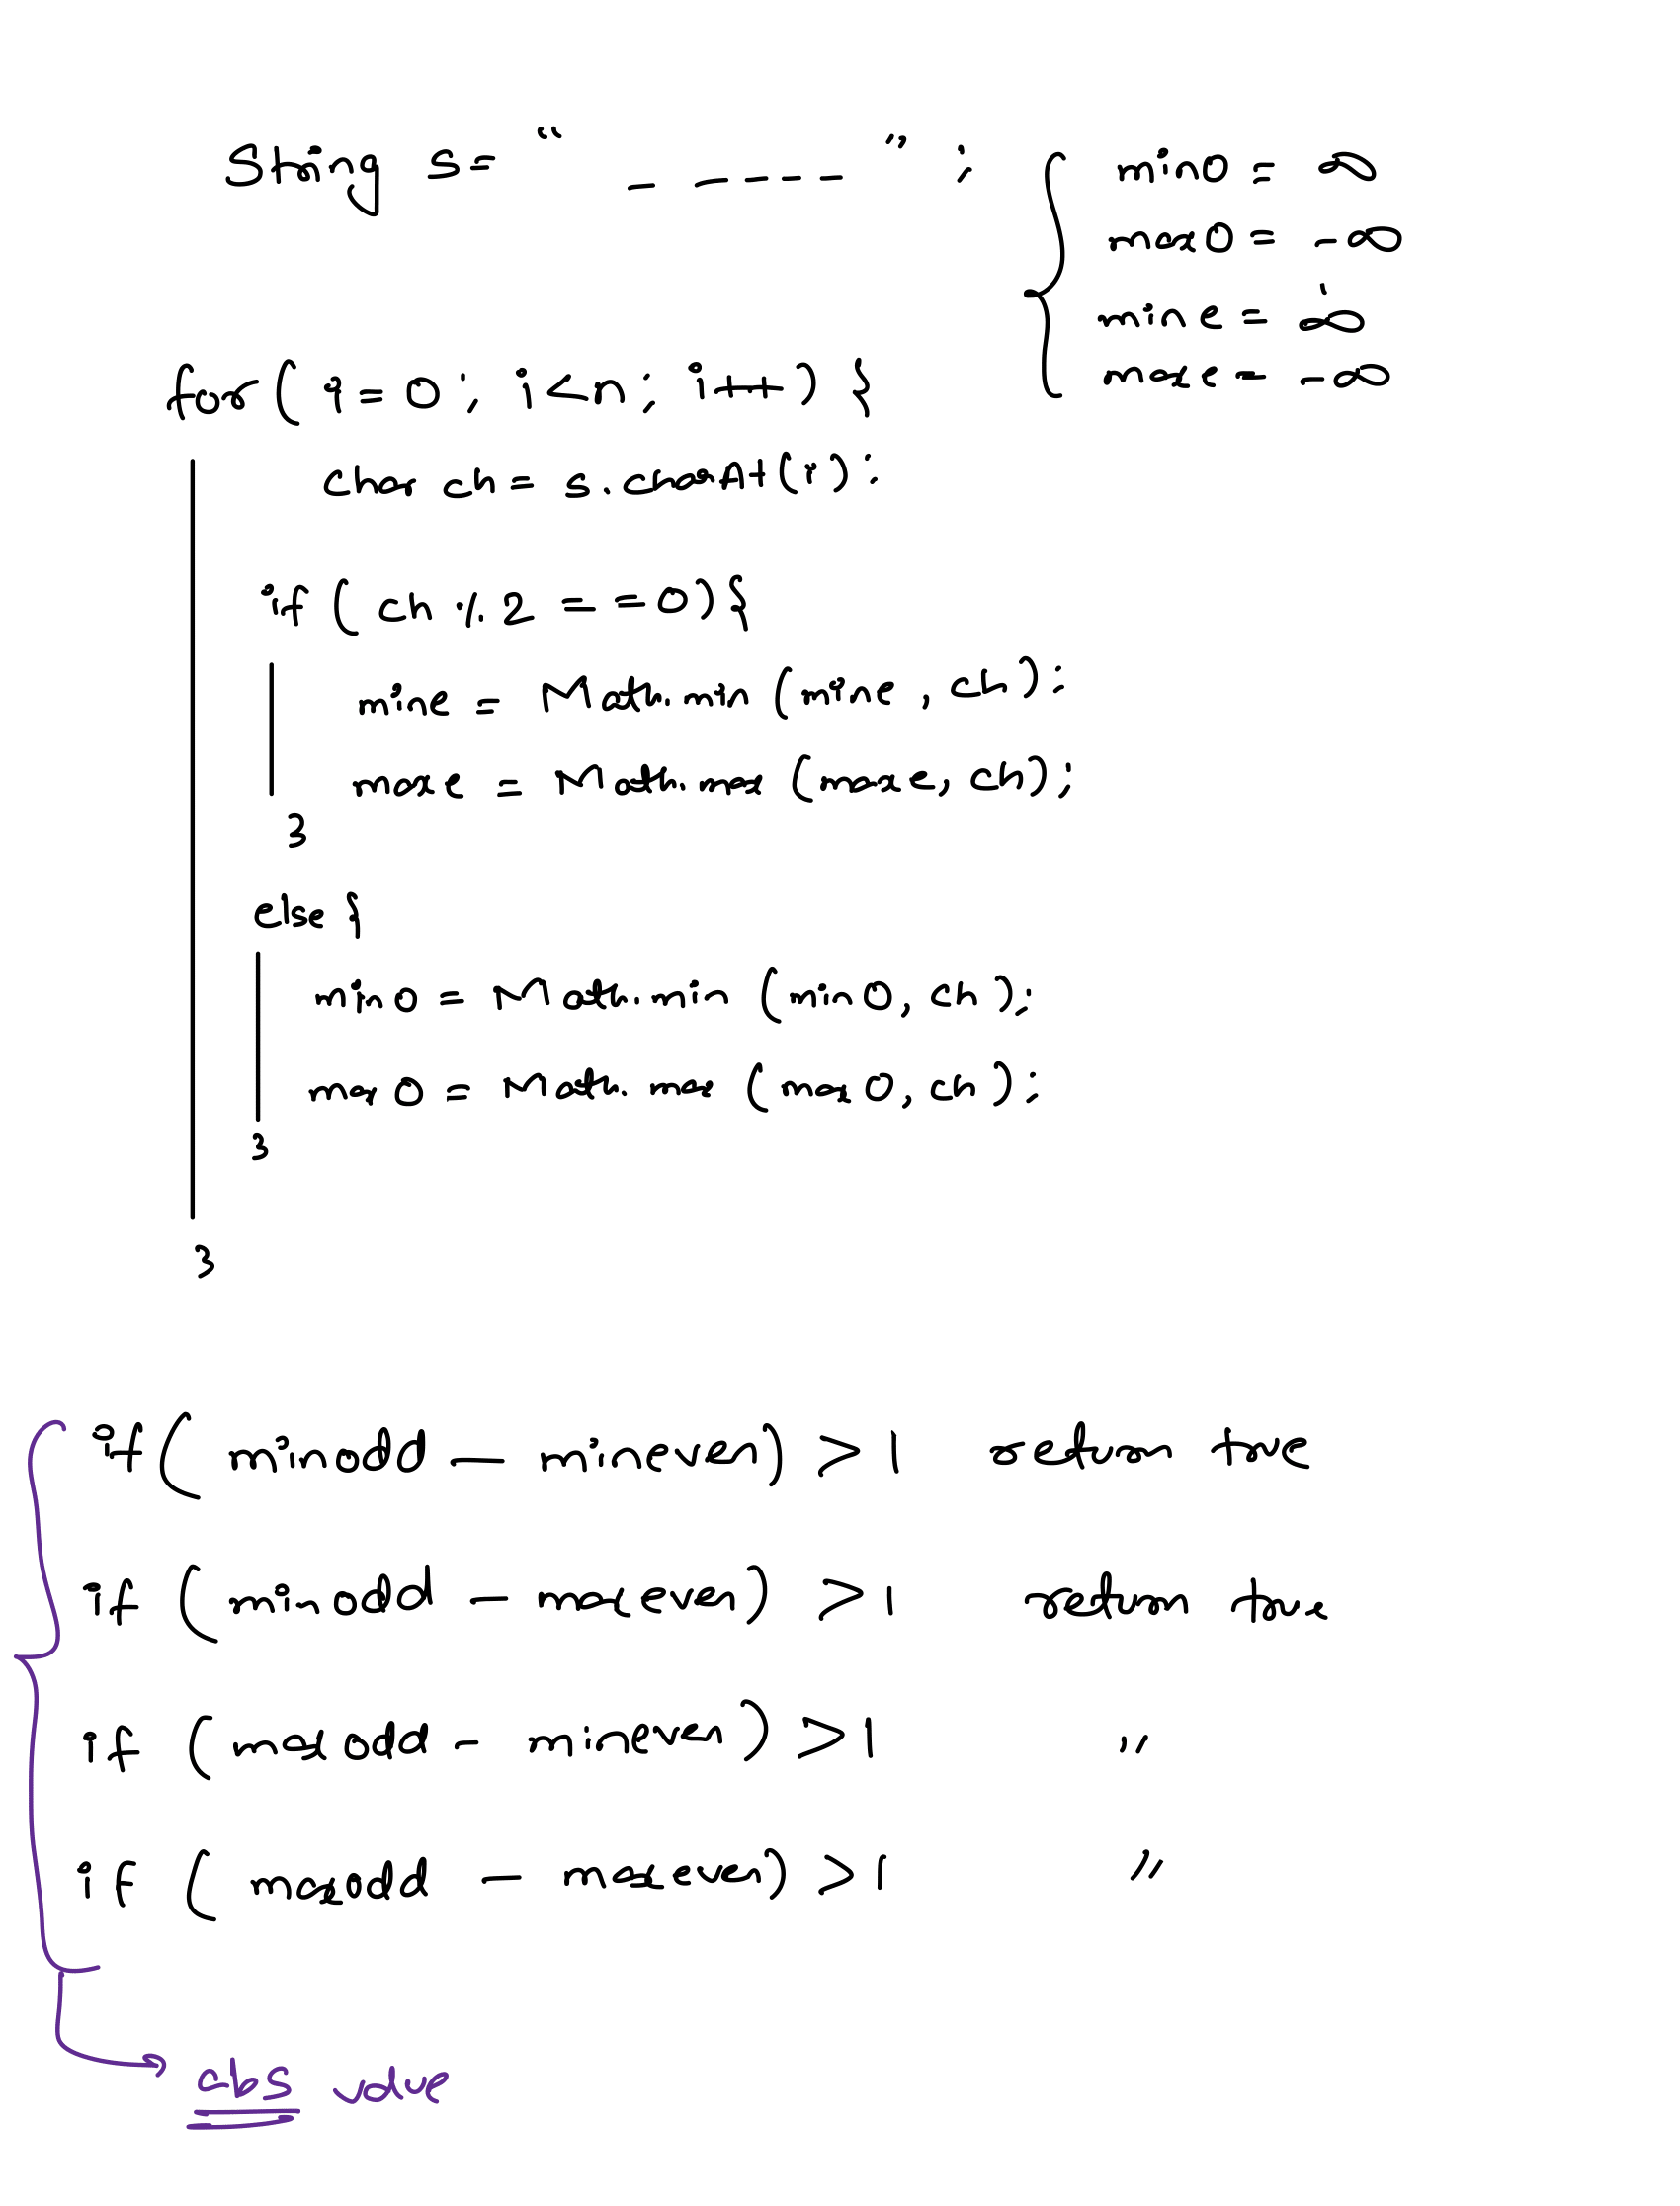 String s= “ _ _ _ _ _ ” ;
min0 = ∞
max0 = -∞
mine = ∞
maxe = -∞
for ( i = 0 ; i < n ; i++ ) {
char ch = s.charAt(i) ;
if ( ch % 2 == 0) {
mine = Math.min (mine , ch) ;
maxe = Math.max (maxe, ch) ;
}
else {
mino = Math.min (min0, ch ) ;
max0 = Math.max (max0, ch ) ;
}
}
if ( minodd - mineven) > 1 return true
if ( minodd - maxeven) > 1 return true
if ( maxodd - mineven ) > 1 "
if ( maxodd - maxeven) > 1 "
abs value